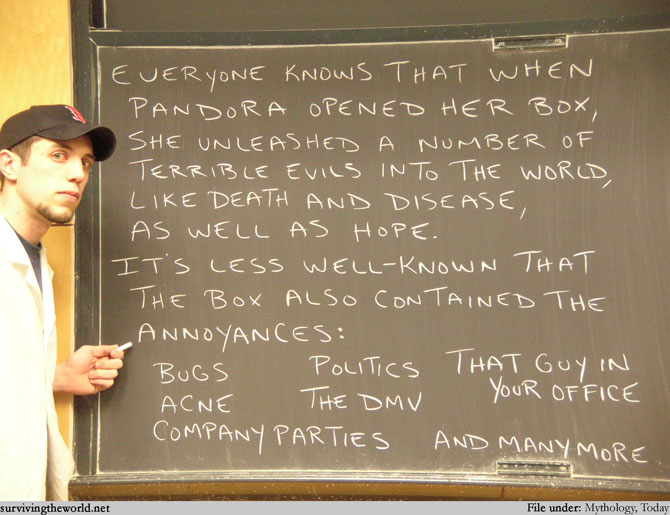 EVERYONE KNOWS THAT WHEN
PANDORA OPENED HER BOX,
SHE UNLEASHED A NUMBER OF
TERRIBLE EVILS INTO THE WORLD,
LIKE DEATH AND DISEASE,
AS WELL AS HOPE.
IT'S LESS WELL-KNOWN THAT
THE BOX ALSO CONTAINED THE
ANNOYANCES:
BUGS POLITICS THAT GUY IN
YOUR OFFICE
ACNE THE DMV
COMPANY PARTIES AND MANY MORE
survivingtheworld.net File under: Mythology, Today